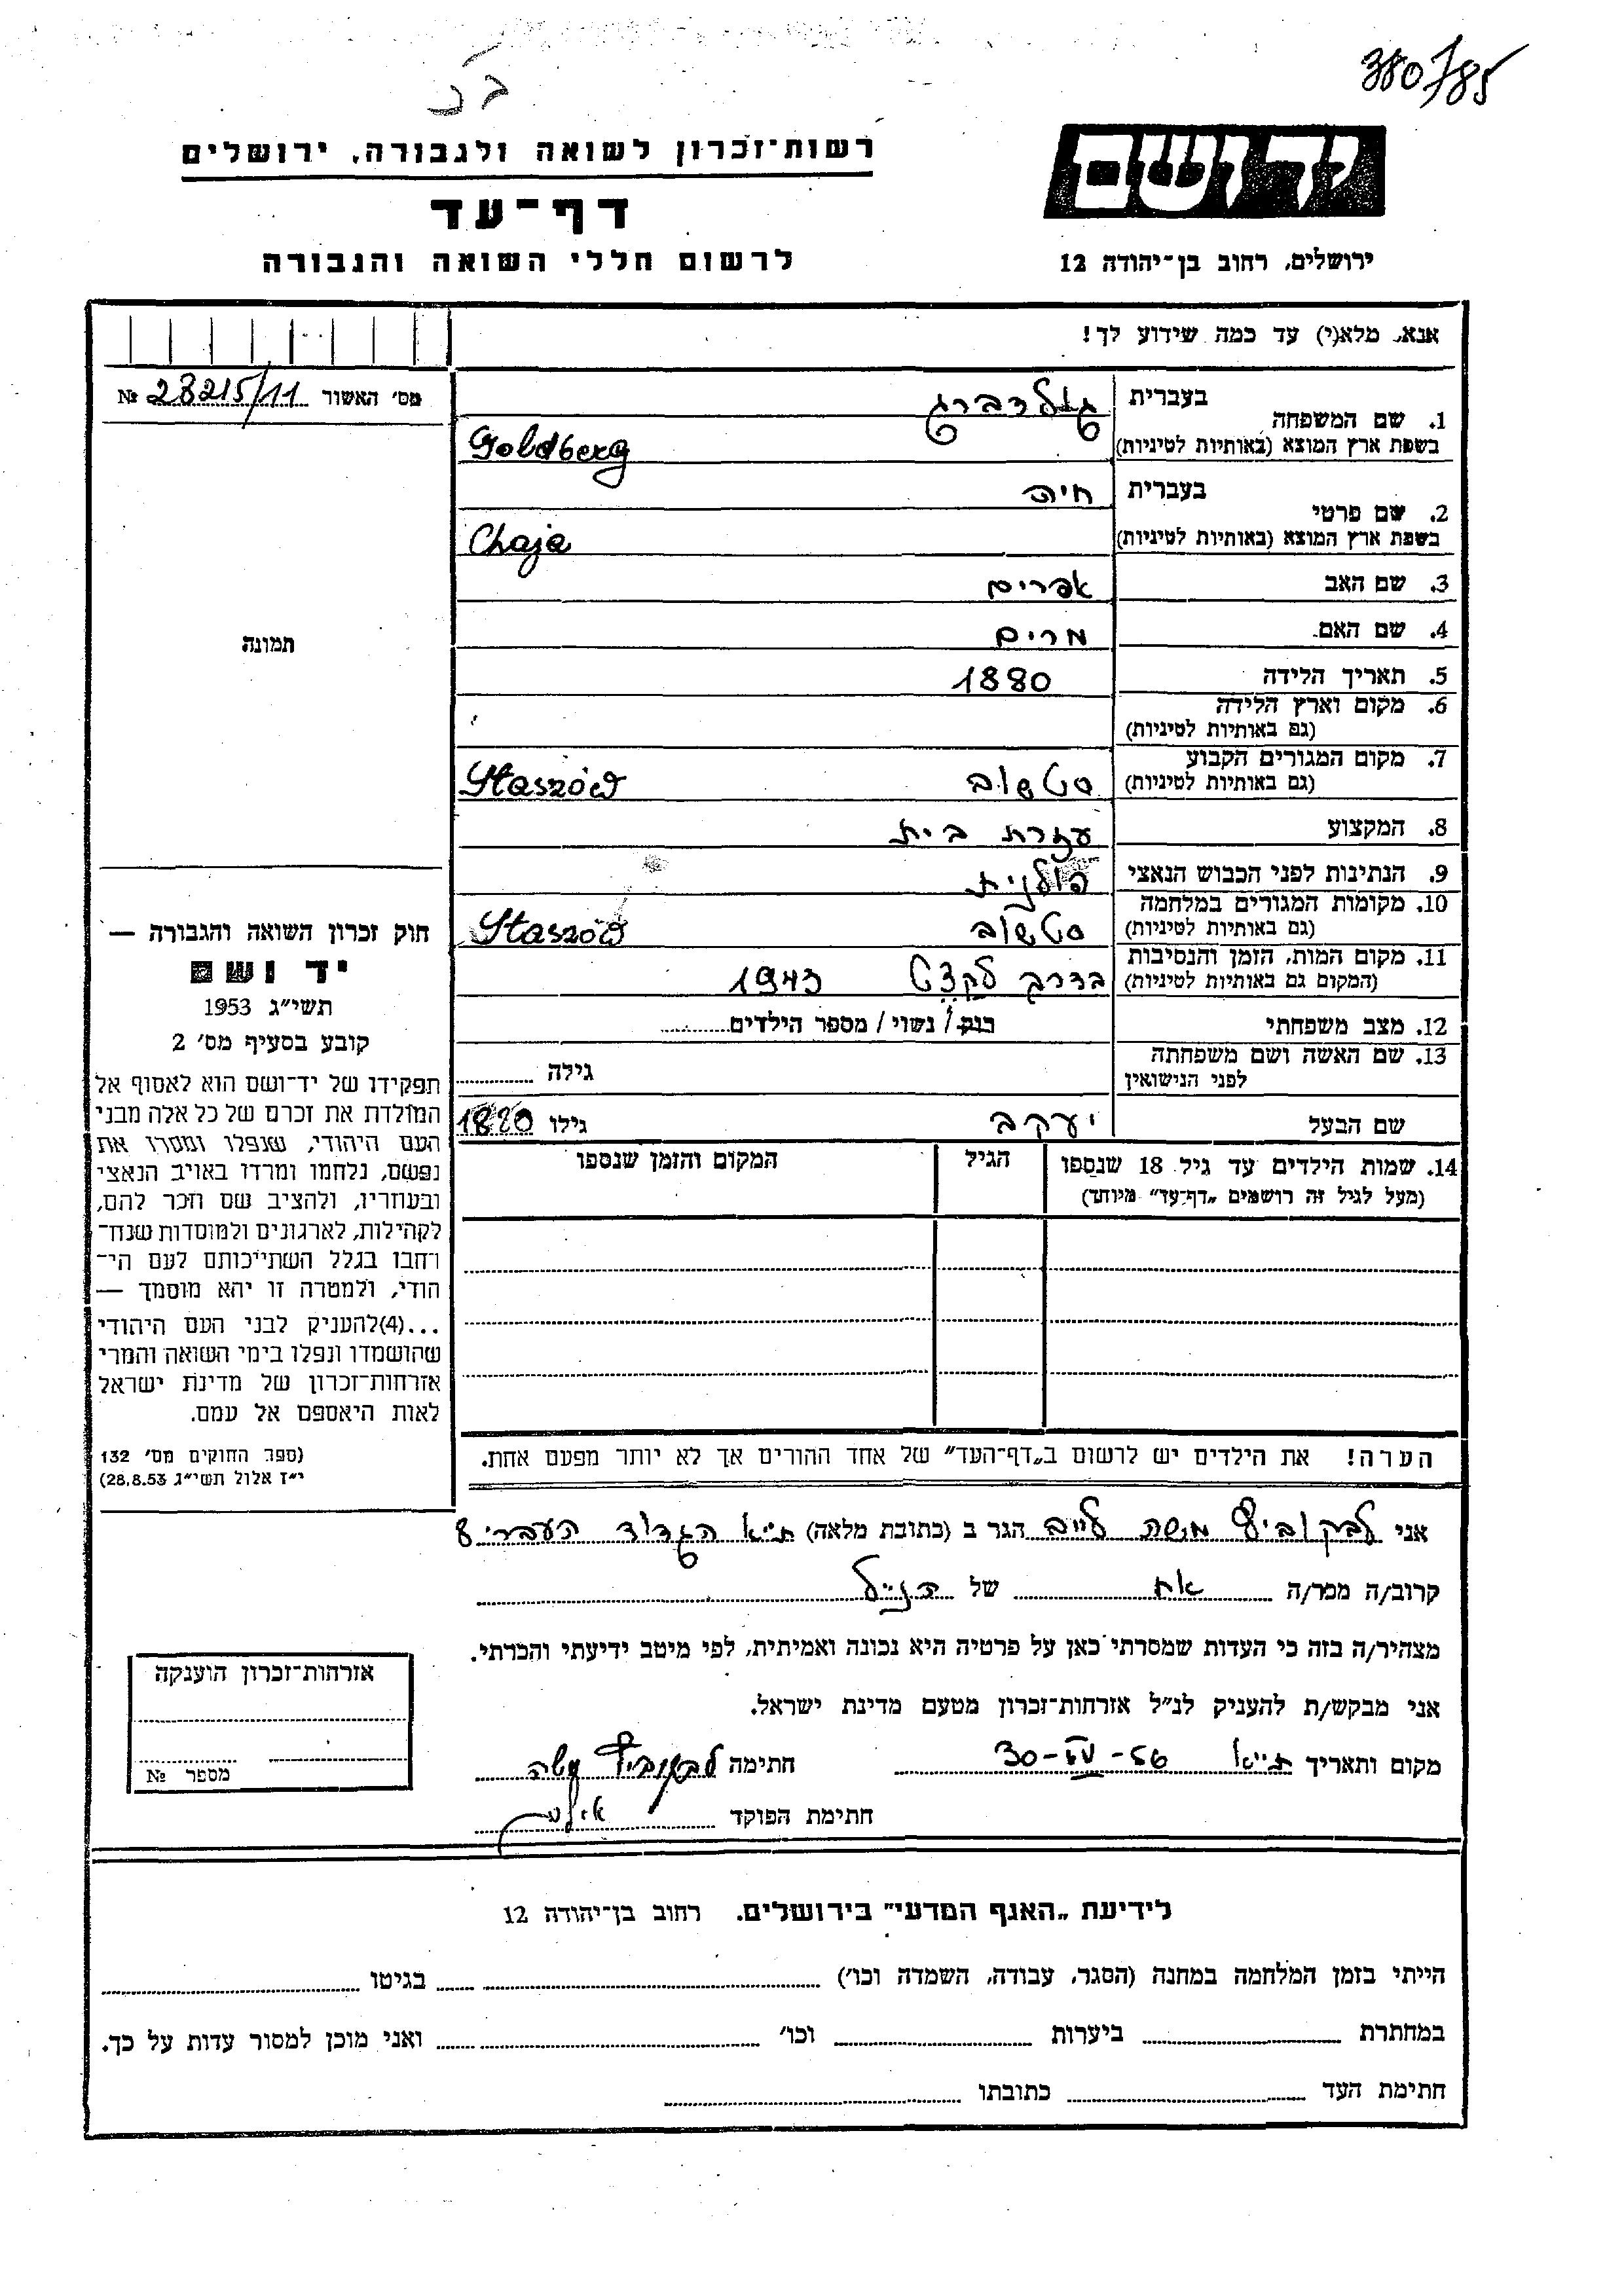 380/85
רשות־זכרון לשואה ולגבורה, ירושלים
יד ושם
דף־עד
לרשום חללי השואה והגבורה
ירושלים, רחוב בן־יהודה 12
אנא, מלא(י) עד כמה שידוע לך!
מס' האשור 28215/11 №
1. שם המשפחה בעברית גולדברג
בשפת ארץ המוצא (באותיות לטיניות) Goldberg
2. שם פרטי בעברית חיה
בשפת ארץ המוצא (באותיות לטיניות) Chaja
3. שם האב אפרים
4. שם האם מרים
5. תאריך הלידה 1880
6. מקום וארץ הלידה
(גם באותיות לטיניות)
7. מקום המגורים הקבוע סטשוב Staszów
(גם באותיות לטיניות)
8. המקצוע עזרת בית
9. הנתינות לפני הכבוש הנאצי פולנית
10. מקומות המגורים במלחמה סטשוב Staszów
(גם באותיות לטיניות)
11. מקום המות, הזמן והנסיבות בדרך 1943
(המקום גם באותיות לטיניות)
12. מצב משפחתי רווק / נשוי / מספר הילדים
13. שם האשה ושם משפחתה
לפני הנישואין גילה
שם הבעל יעקב גילו 1880
14. שמות הילדים עד גיל 18 שנספו הגיל המקום והזמן שנספו
(מעל לגיל זה רושמים „דף־עד" מיוחד)
הערה! את הילדים יש לרשום ב„דף־העד" של אחד ההורים אך לא יותר מפעם אחת.
תמונה
חוק זכרון השואה והגבורה —
יד ושם
תשי"ג 1953
קובע בסעיף מס' 2
תפקידו של יד־ושם הוא לאסוף אל
המולדת את זכרם של כל אלה מבני
העם היהודי, שנפלו ומסרו את
נפשם, נלחמו ומרדו באויב הנאצי
ובעוזריו, ולהציב שם וזכר להם,
לקהילות, לארגונים ולמוסדות שנח־
רבו בגלל השתייכותם לעם הי־
הודי, ולמטרה זו יהא מוסמך —
...(4) להעניק לבני העם היהודי
שהושמדו ונפלו בימי השואה והמרי
אזרחות־זכרון של מדינת ישראל
לאות היאספם אל עמם.
(ספר החוקים מס' 132
י"ז אלול תשי"ג 28.8.53)
אני משה לייב הגר ב (כתובת מלאה) ת"א הגדוד העברי 8
קרוב/ה מכר/ה אח של הנ"ל
מצהיר/ה בזה כי העדות שמסרתי כאן על פרטיה היא נכונה ואמיתית, לפי מיטב ידיעתי והכרתי.
אני מבקש/ת להעניק לנ"ל אזרחות־זכרון מטעם מדינת ישראל.
מקום ותאריך ת"א 30- -56 חתימה משה
חתימת הפוקד
אזרחות־זכרון הוענקה
מספר №
לידיעת „האגף המדעי" בירושלים, רחוב בן־יהודה 12
הייתי בזמן המלחמה במחנה (הסגר, עבודה, השמדה וכו') בגיטו
במחתרת ביערות וכו' ואני מוכן למסור עדות על כך.
חתימת העד כתובתו